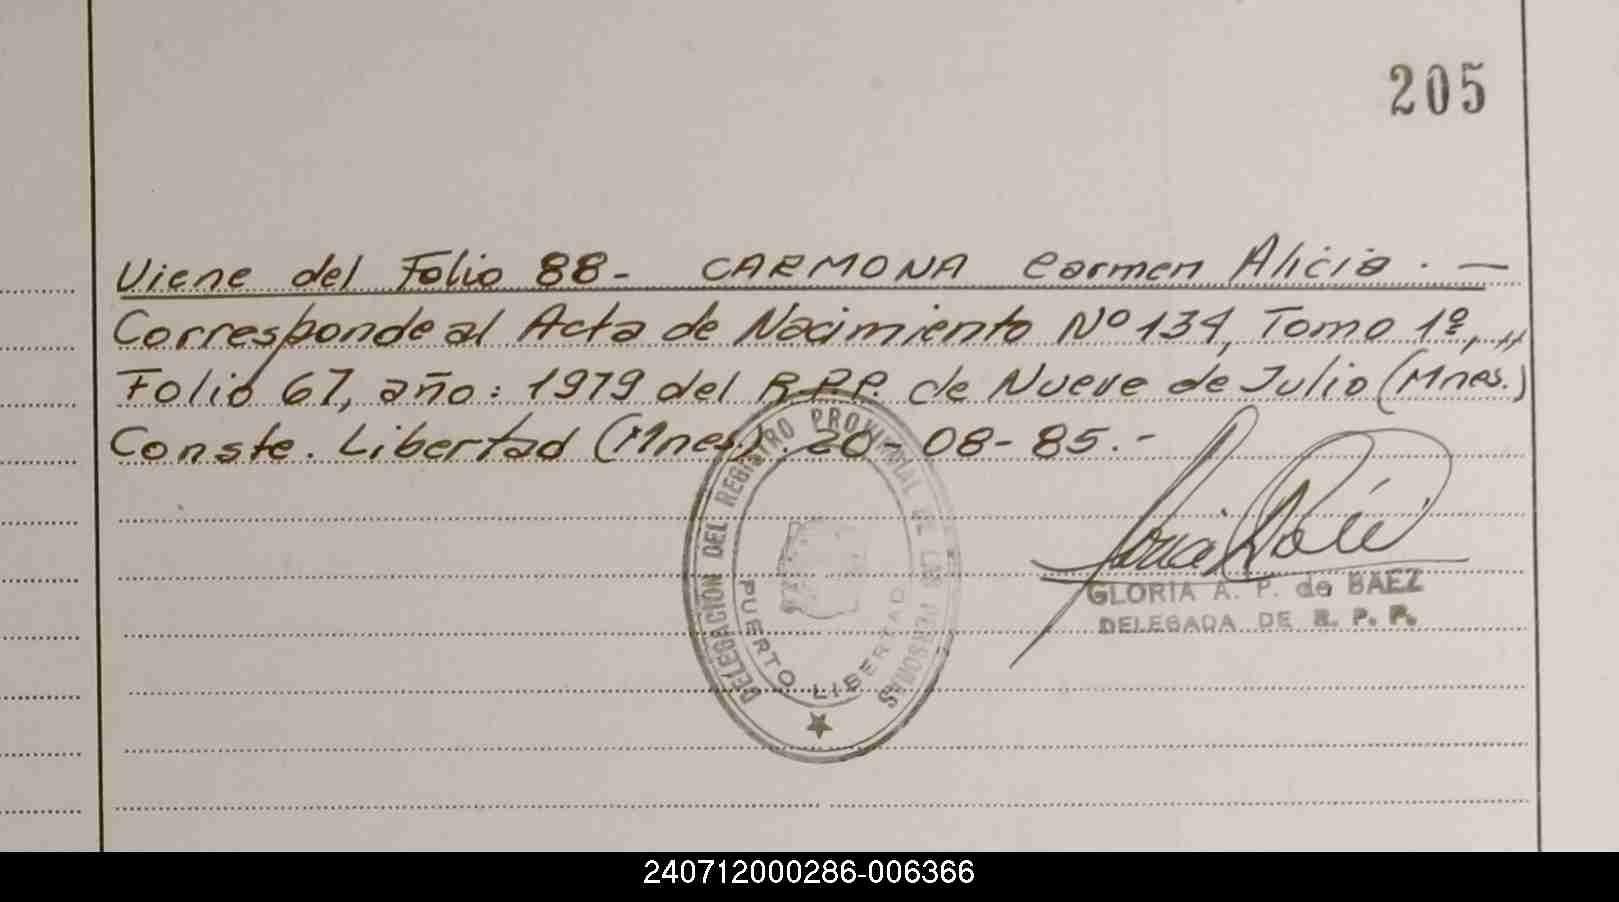 205
Viene del Folio 88- CARMONA Carmen Alicia. —
Corresponde al Acta de Nacimiento Nº 134, Tomo 1º,,,
Folio 67, año: 1979 del R.P.P. de Nueve de Julio (Mnes.)
Conste. Libertad (Mnes). 20-08-85.-
DELEGACION DEL REGISTRO PROVINCIAL DE LAS PERSONAS
PUERTO LIBERTAD
GLORIA A. P. de BAEZ
DELEGADA DE R. P. P.
240712000286-006366